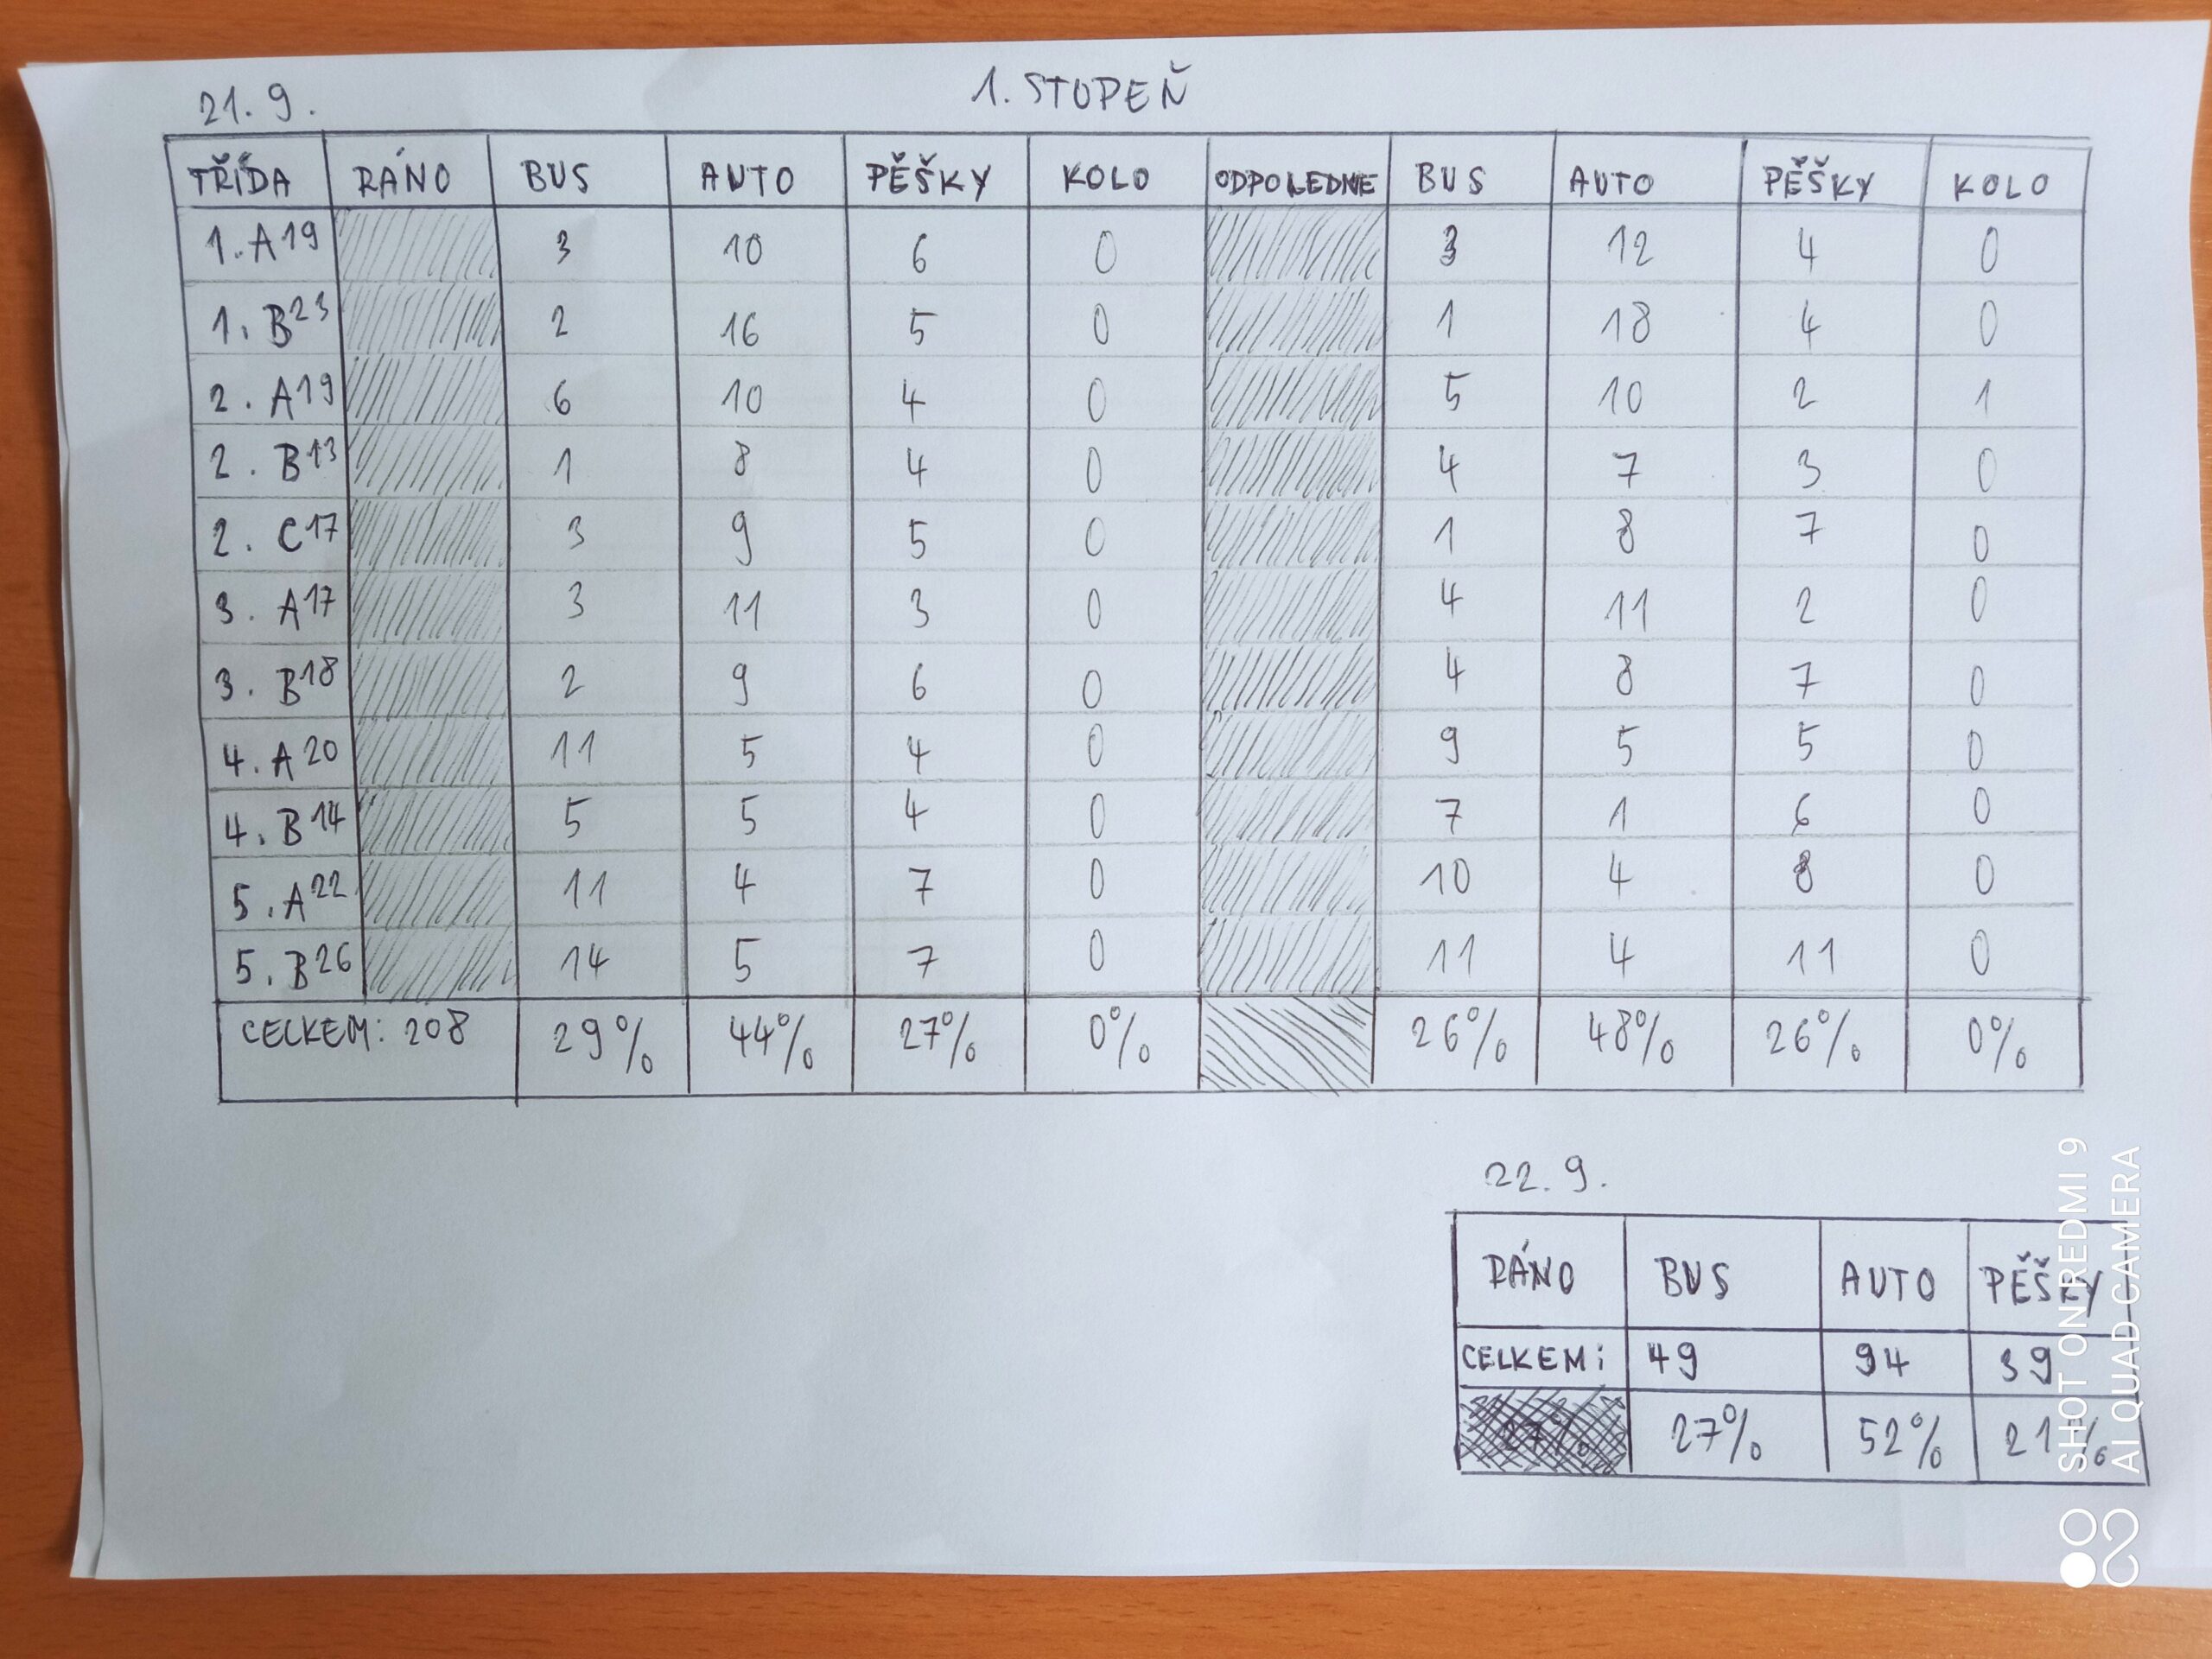 21. 9. 1. STUPEŇ
TŘÍDA RÁNO BUS AUTO PĚŠKY KOLO ODPOLEDNE BUS AUTO PĚŠKY KOLO
1. A 19 3 10 6 0 3 12 4 0
1. B 23 2 16 5 0 1 18 4 0
2. A 19 6 10 4 0 5 10 2 1
2. B 13 1 8 4 0 4 7 3 0
2. C 17 3 9 5 0 1 8 7 0
3. A 17 3 11 3 0 4 11 2 0
3. B 18 2 9 6 0 4 8 7 0
4. A 20 11 5 4 0 9 5 5 0
4. B 14 5 5 4 0 7 1 6 0
5. A 22 11 4 7 0 10 4 8 0
5. B 26 14 5 7 0 11 4 11 0
CELKEM: 208 29% 44% 27% 0% 26% 48% 26% 0%
22. 9.
RÁNO BUS AUTO PĚŠKY
CELKEM: 49 94 39
27% 52% 21%
SHOT ON REDMI 9
AI QUAD CAMERA